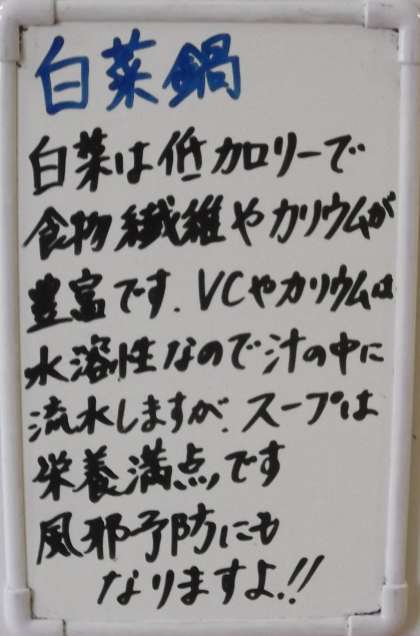 白菜鍋
白菜は低カロリーで
食物繊維やカリウムが
豊富です.VCやカリウムは
水溶性なので汁の中に
流水しますが.スープは
栄養満点です
風邪予防にも
なりますよ!!